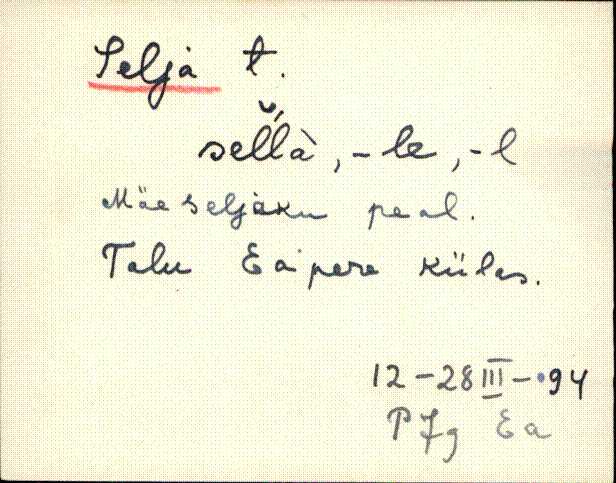 Selja t.
sel̆l̀à, -le, -l
Mäeseljaku peal.
Talu Eapere külas.
12-28 III - 94
P Jg Ea